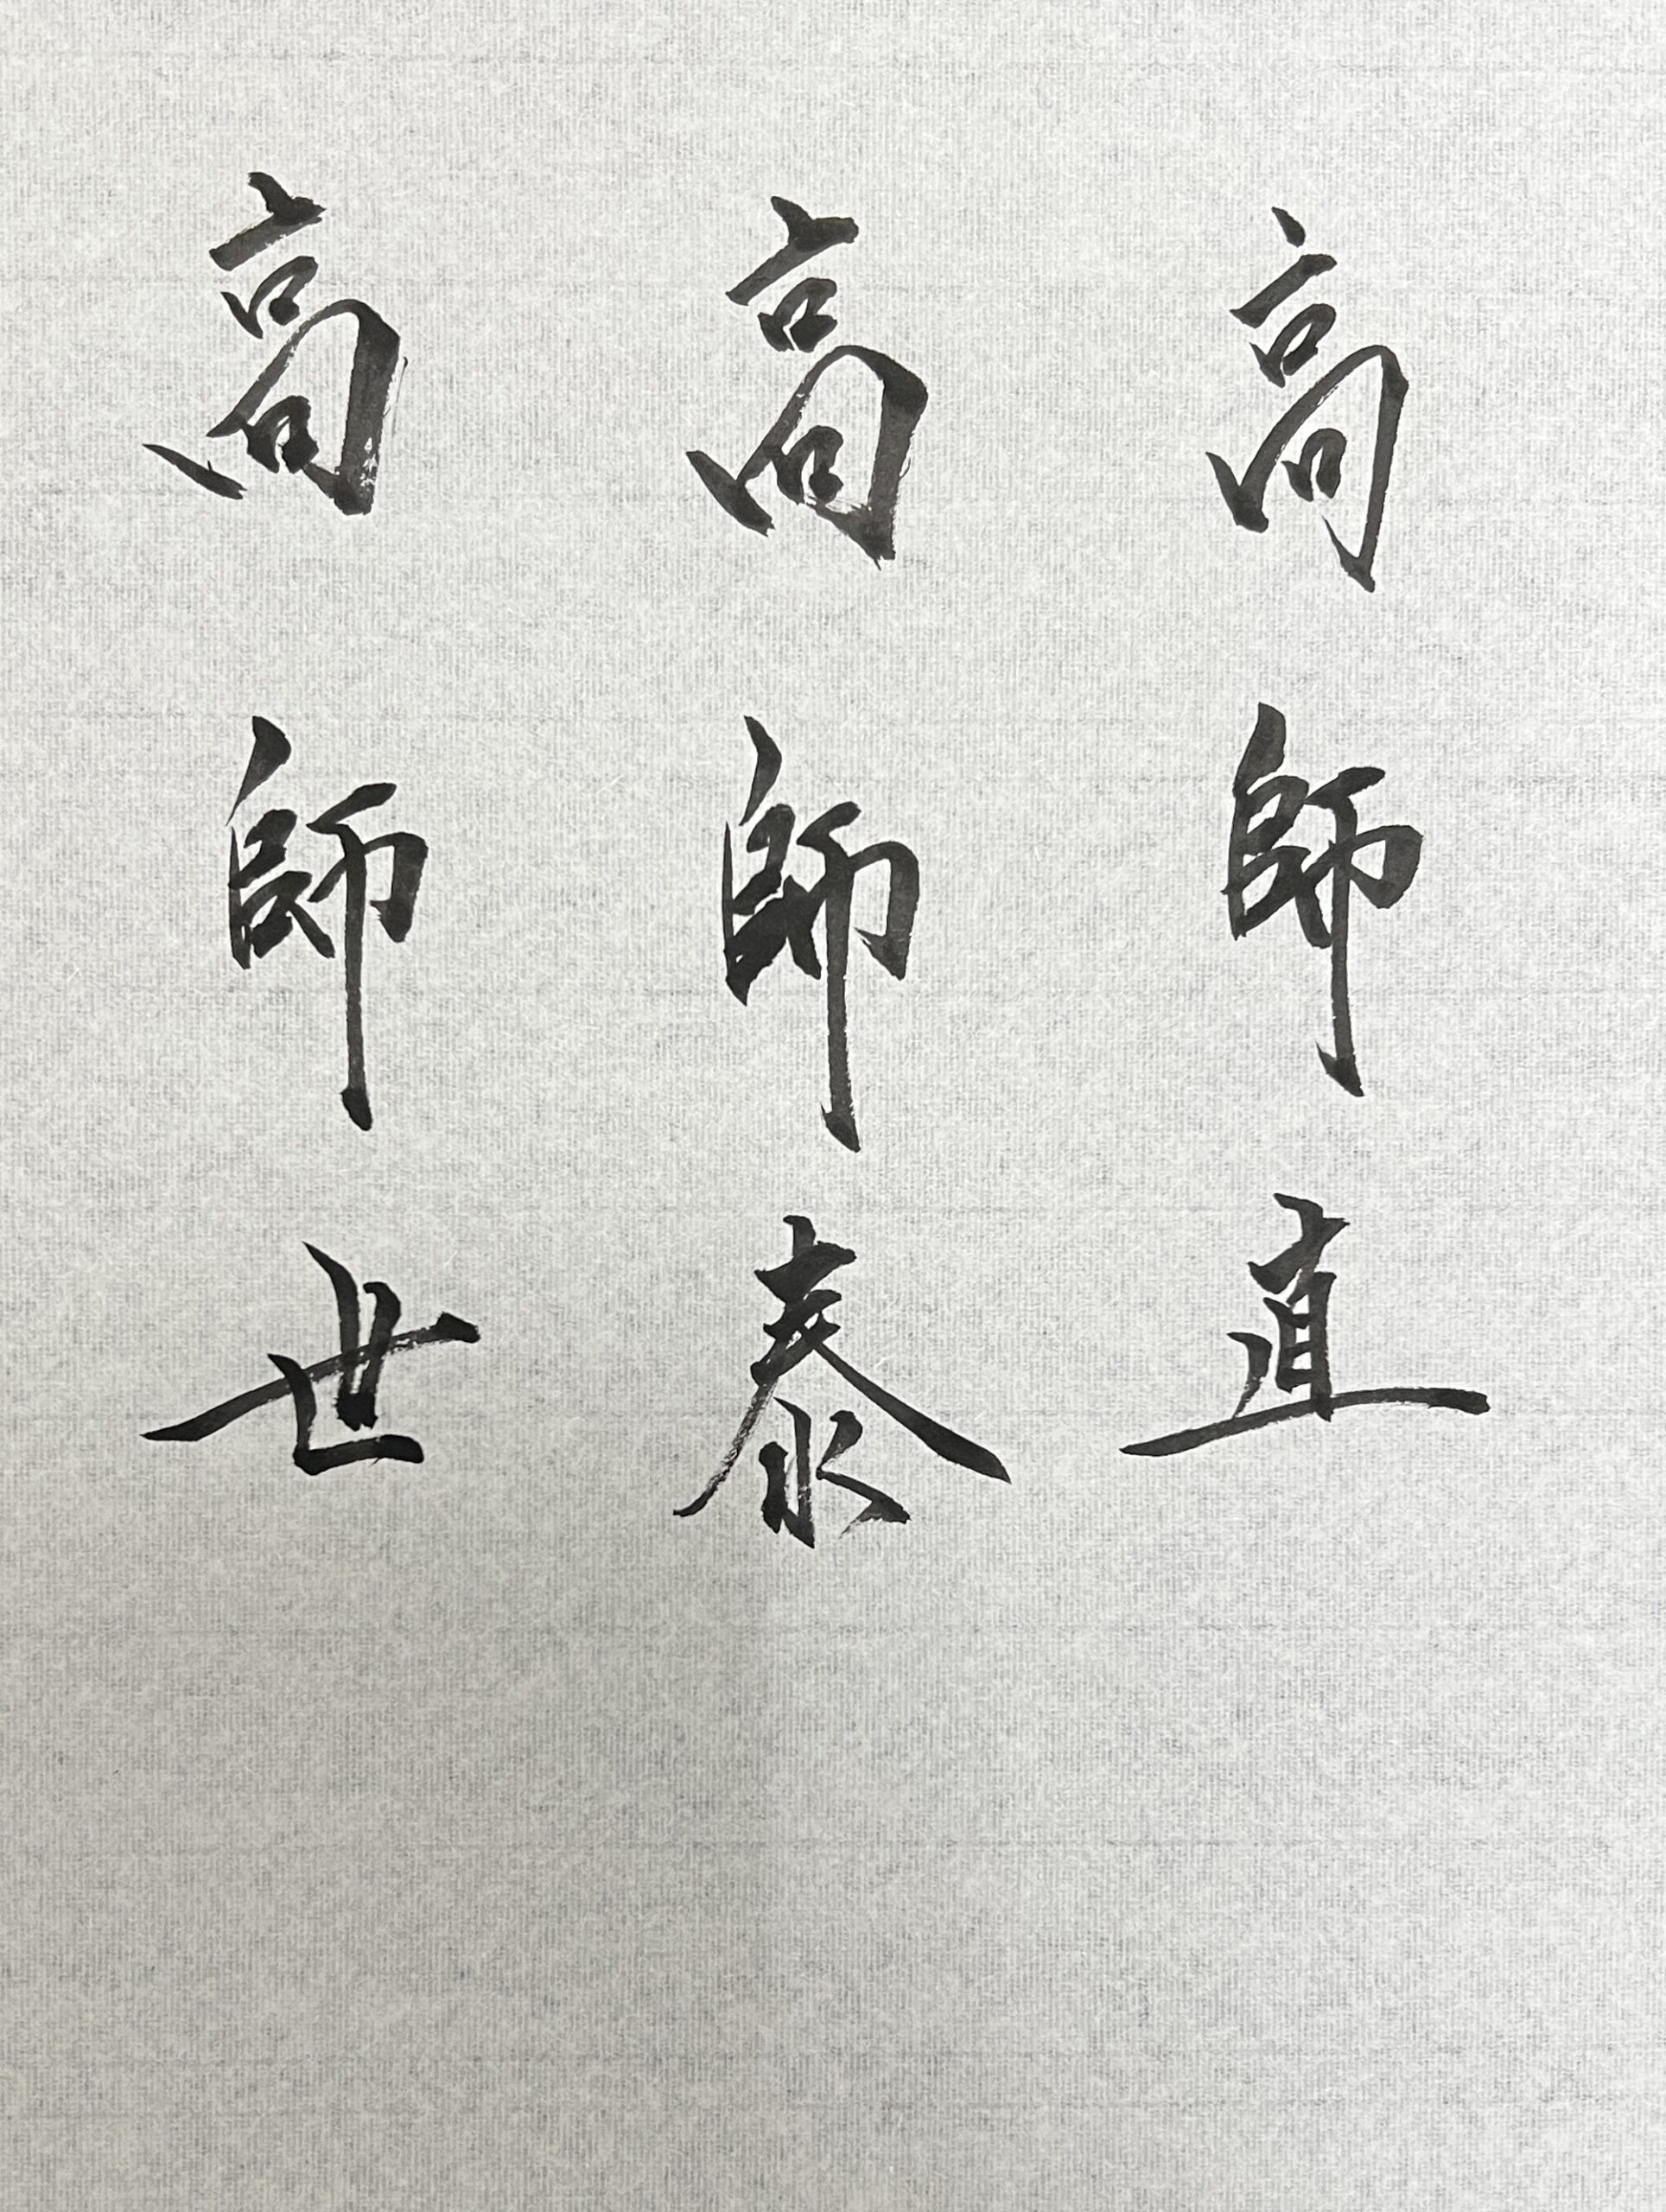 高師直
高師泰
高師世